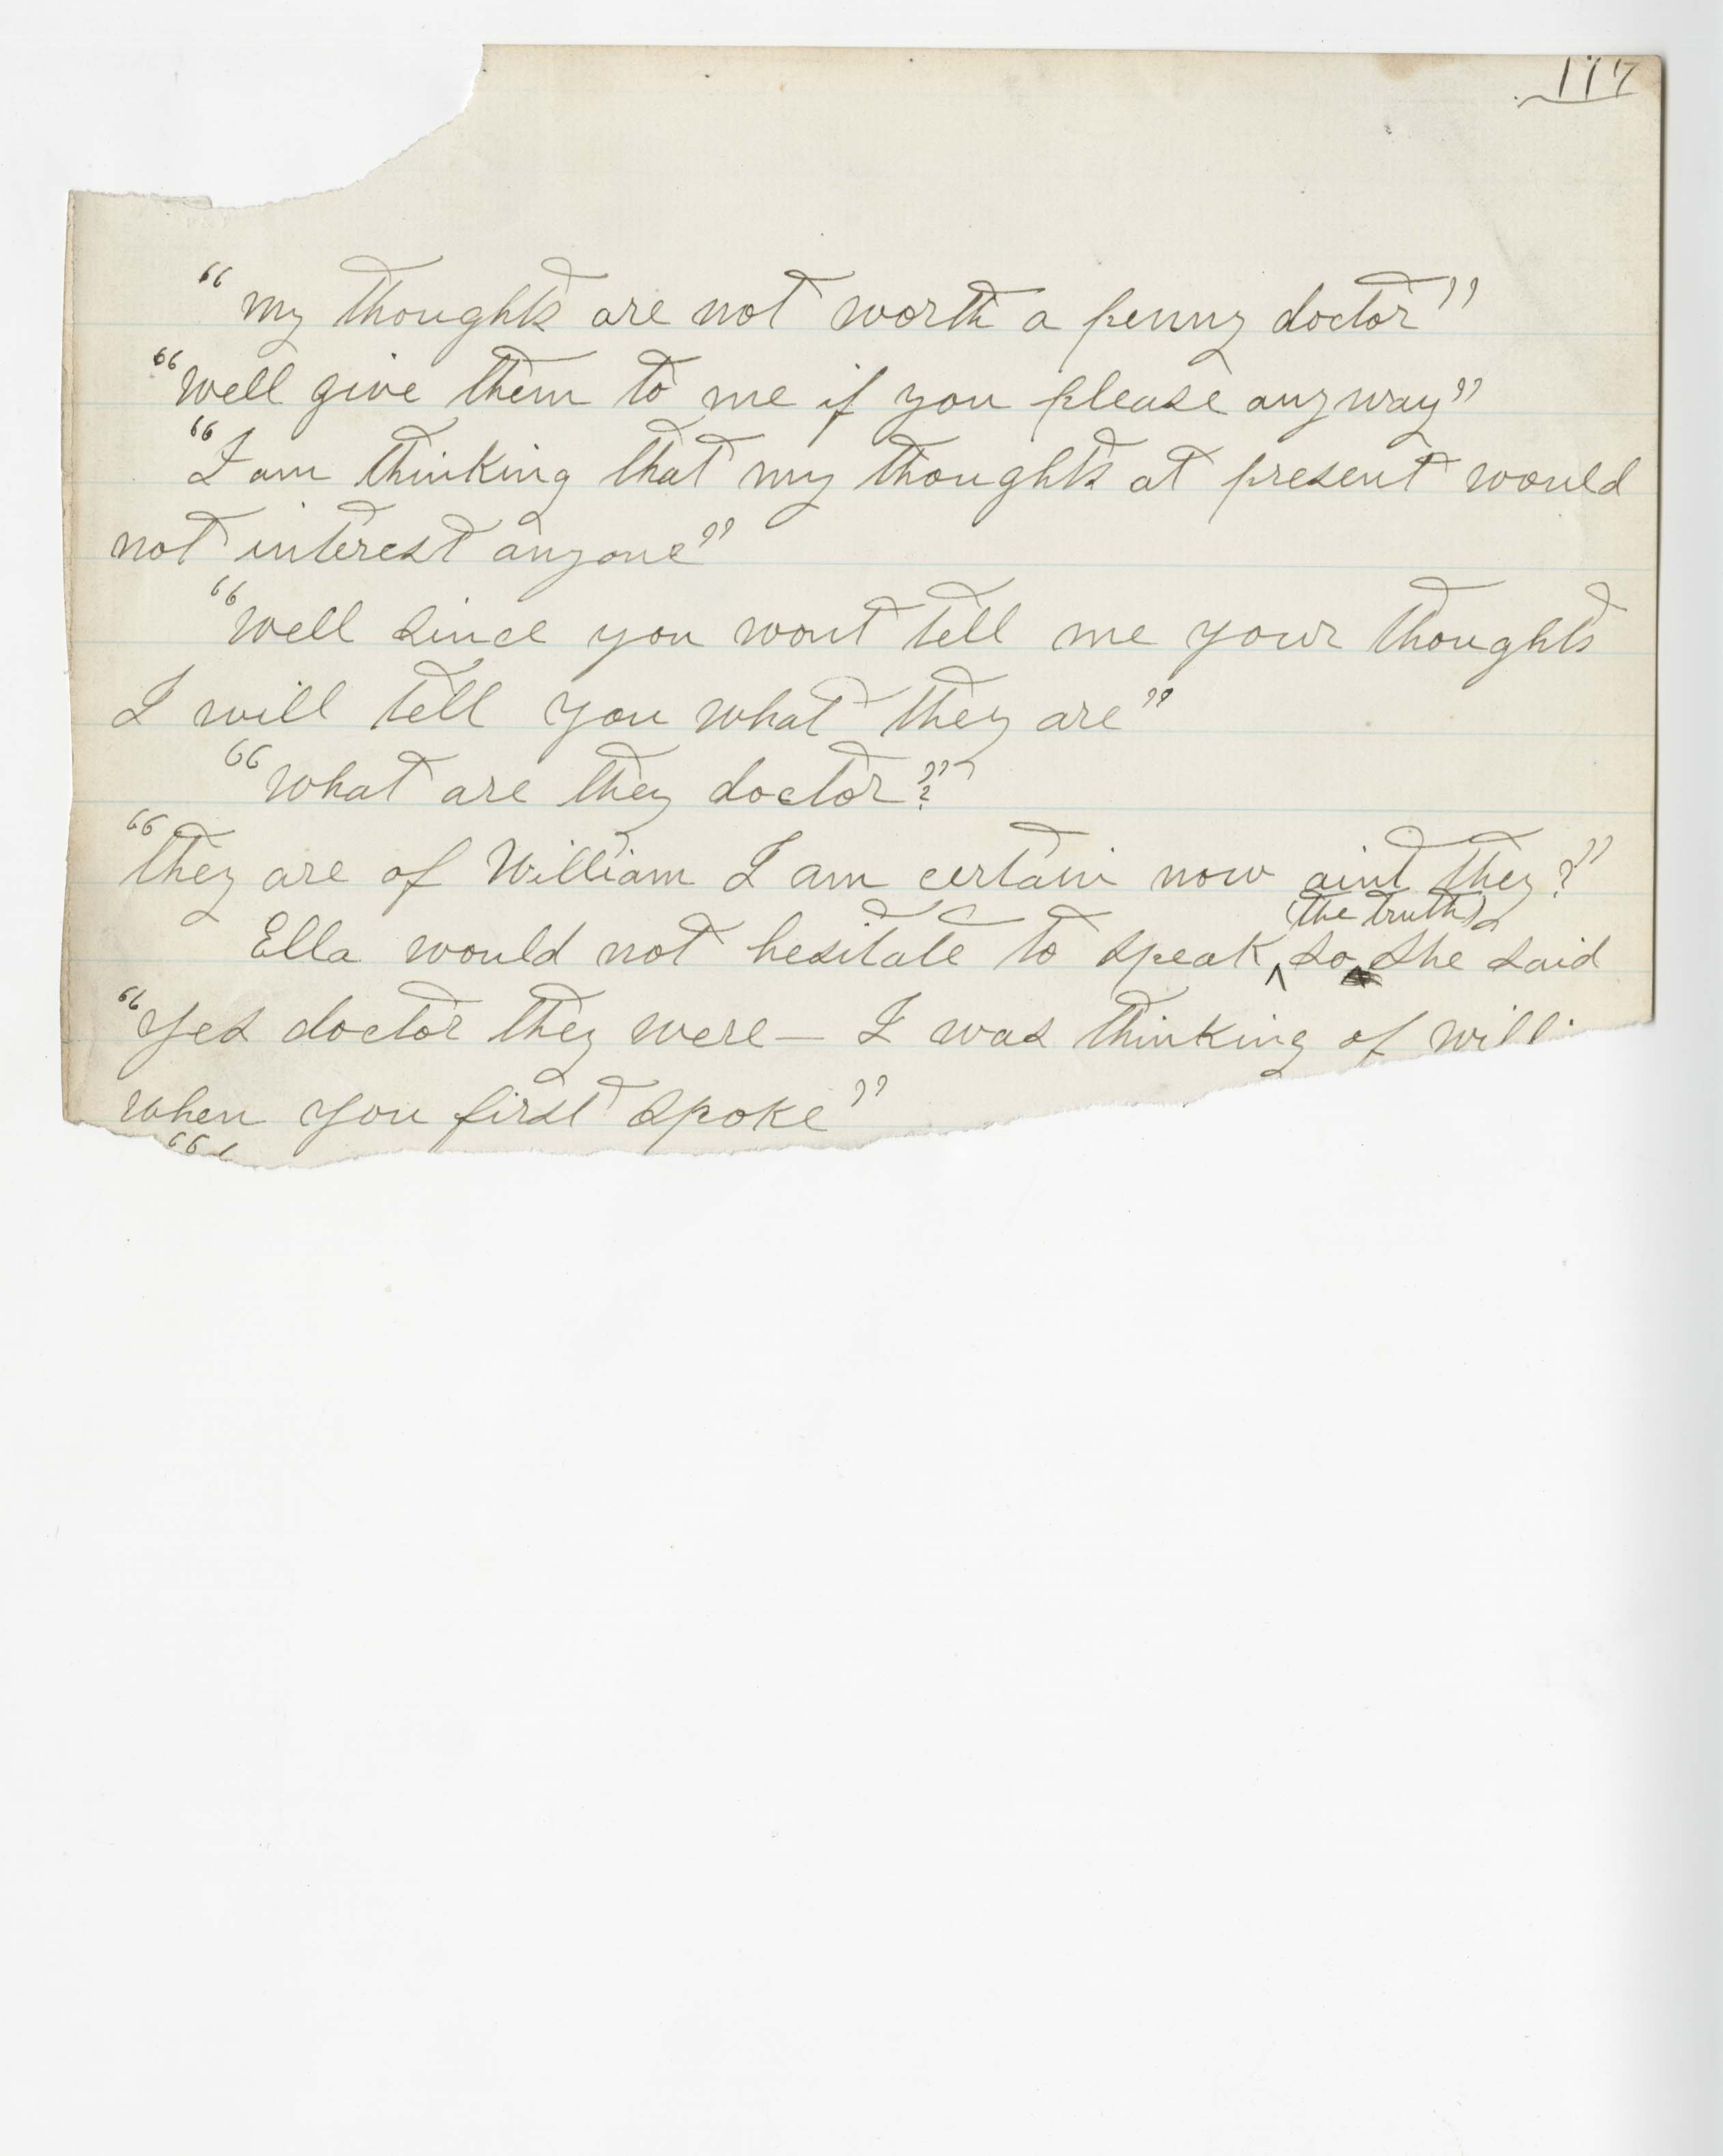 117
"my thoughts are not worth a penny doctor"
"well give them to me if you please anyway"
"I am thinking that my thoughts at present would
not interest anyone"
"well since you wont tell me your thoughts
I will tell you what they are"
"what are they doctor?"
"they are of William I am certain now aint they?"
(the truth)
Ella would not hesitate to speak ^ so she said
"yes doctor they were — I was thinking of willi
when you first spoke"
"